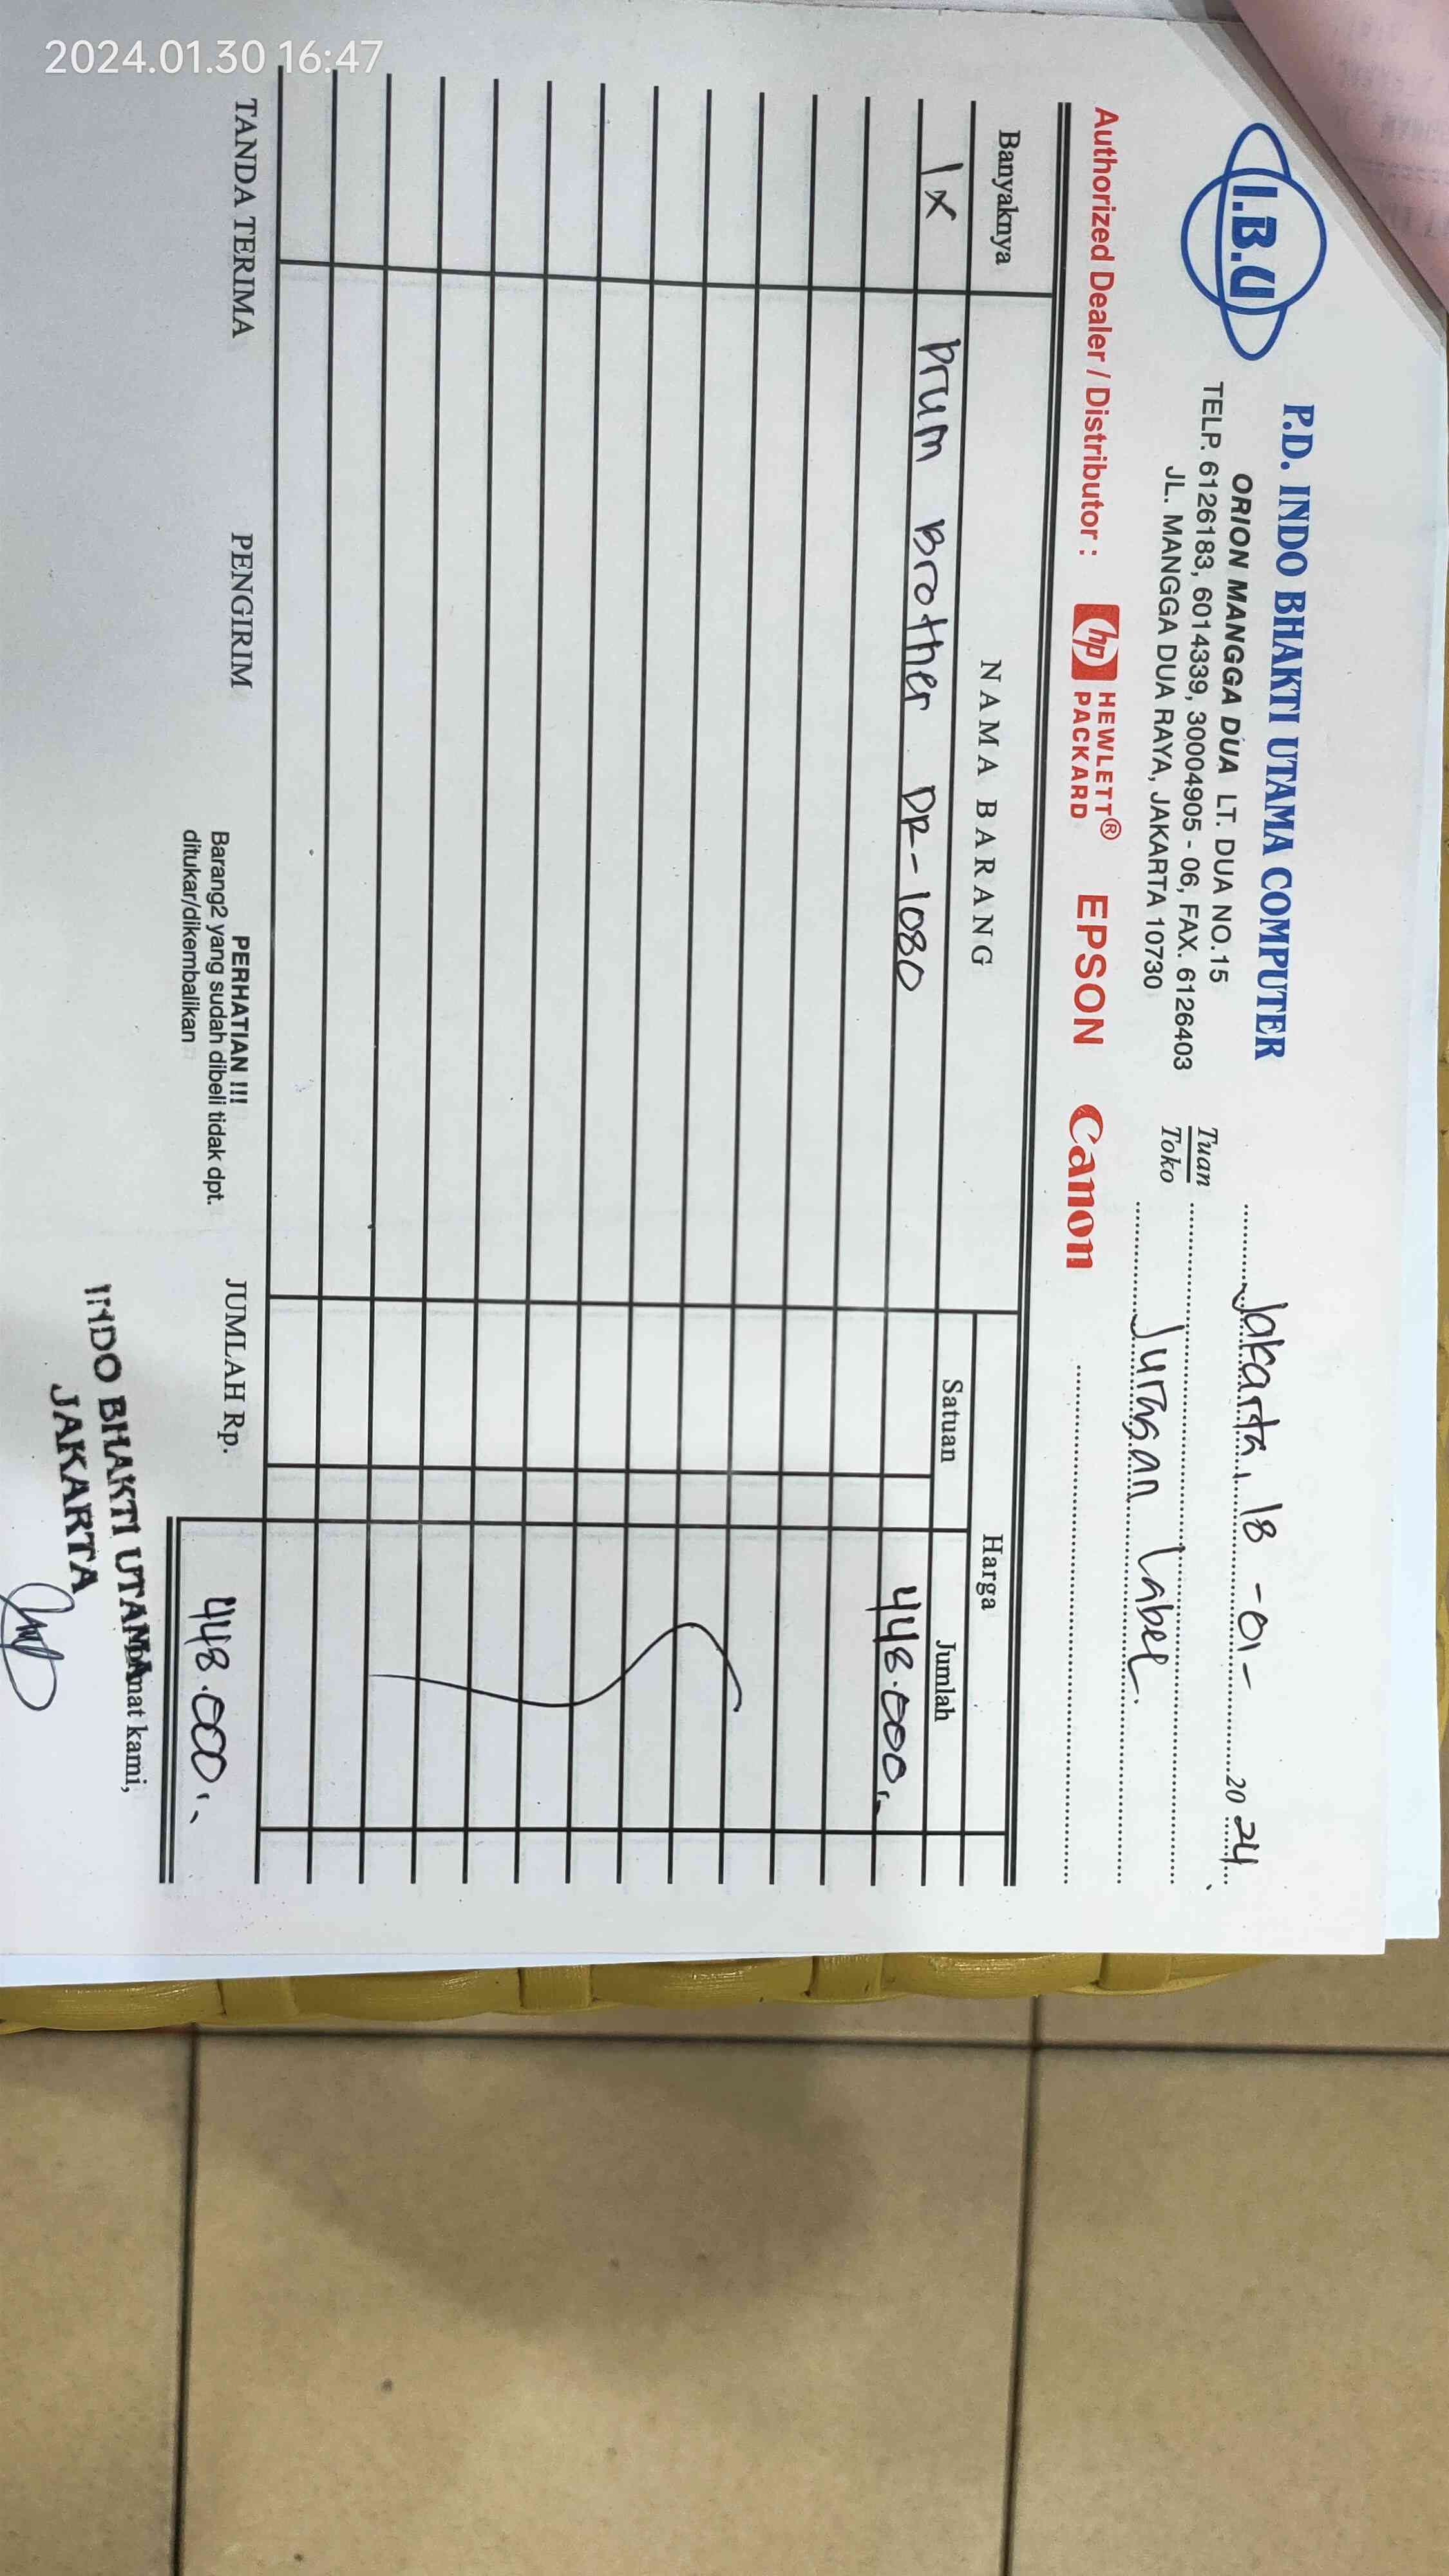 2024.01.30 16:47
I.B.U
P.D. INDO BHAKTI UTAMA COMPUTER
ORION MANGGA DUA LT. DUA NO.15
TELP. 6126183, 6014339, 30004905 - 06, FAX. 6126403
JL. MANGGA DUA RAYA, JAKARTA 10730
Jakarta, 18 - 01 - 2024
Tuan
Toko
Juragan Label.
Authorized Dealer / Distributor : hp HEWLETT® PACKARD EPSON Canon
Banyaknya NAMA BARANG Harga
Satuan Jumlah
1 x Drum Brother DR-1080 448.000,-
TANDA TERIMA PENGIRIM PERHATIAN !!! JUMLAH Rp. 448.000,-
Barang2 yang sudah dibeli tidak dpt.
ditukar/dikembalikan
mat kami,
INDO BHAKTI UTAMA
JAKARTA